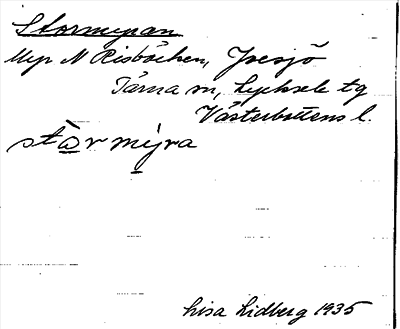 Stormyran
Myr N Risbäcken, Joesjö
Tärna sn, Lycksele tg
Västerbottens l.
stòrmỳra
Lisa Lidberg 1935